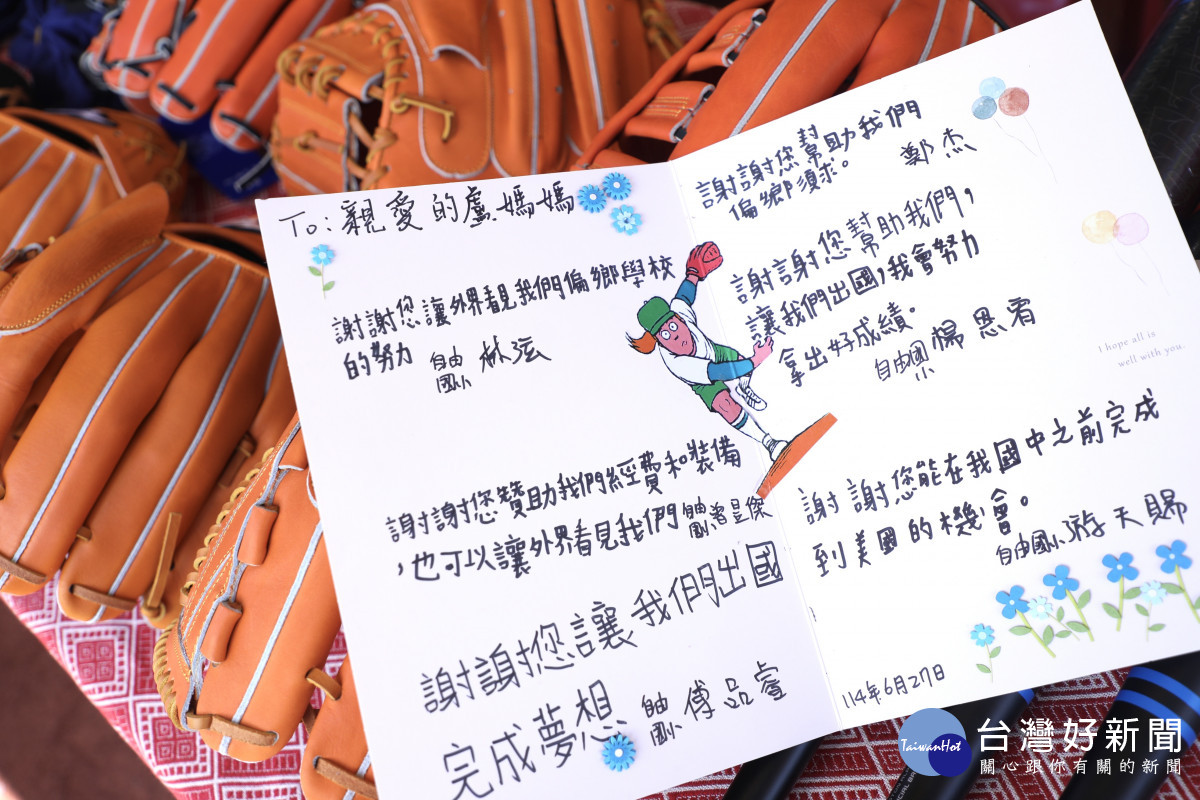 To: 親愛的盧媽媽
謝謝您讓外界看見我們偏鄉學校
的努力 自由國小 林泫
謝謝您贊助我們經費和裝備
,也可以讓外界看見我們 自由國小 呈傑
謝謝您讓我們出國
完成夢想 自由國小 傅品睿
謝謝您幫助我們
偏鄉須求。 鄭杰
謝謝您幫助我們,
讓我們出國,我會努力
拿出好成績。
自由國小 楊恩宥
I hope all is
well with you.
謝謝您能在我國中之前完成
到美國的機會。
自由國小 游天賜
114年6月27日
TaiwanHot
台灣好新聞
關心跟你有關的新聞